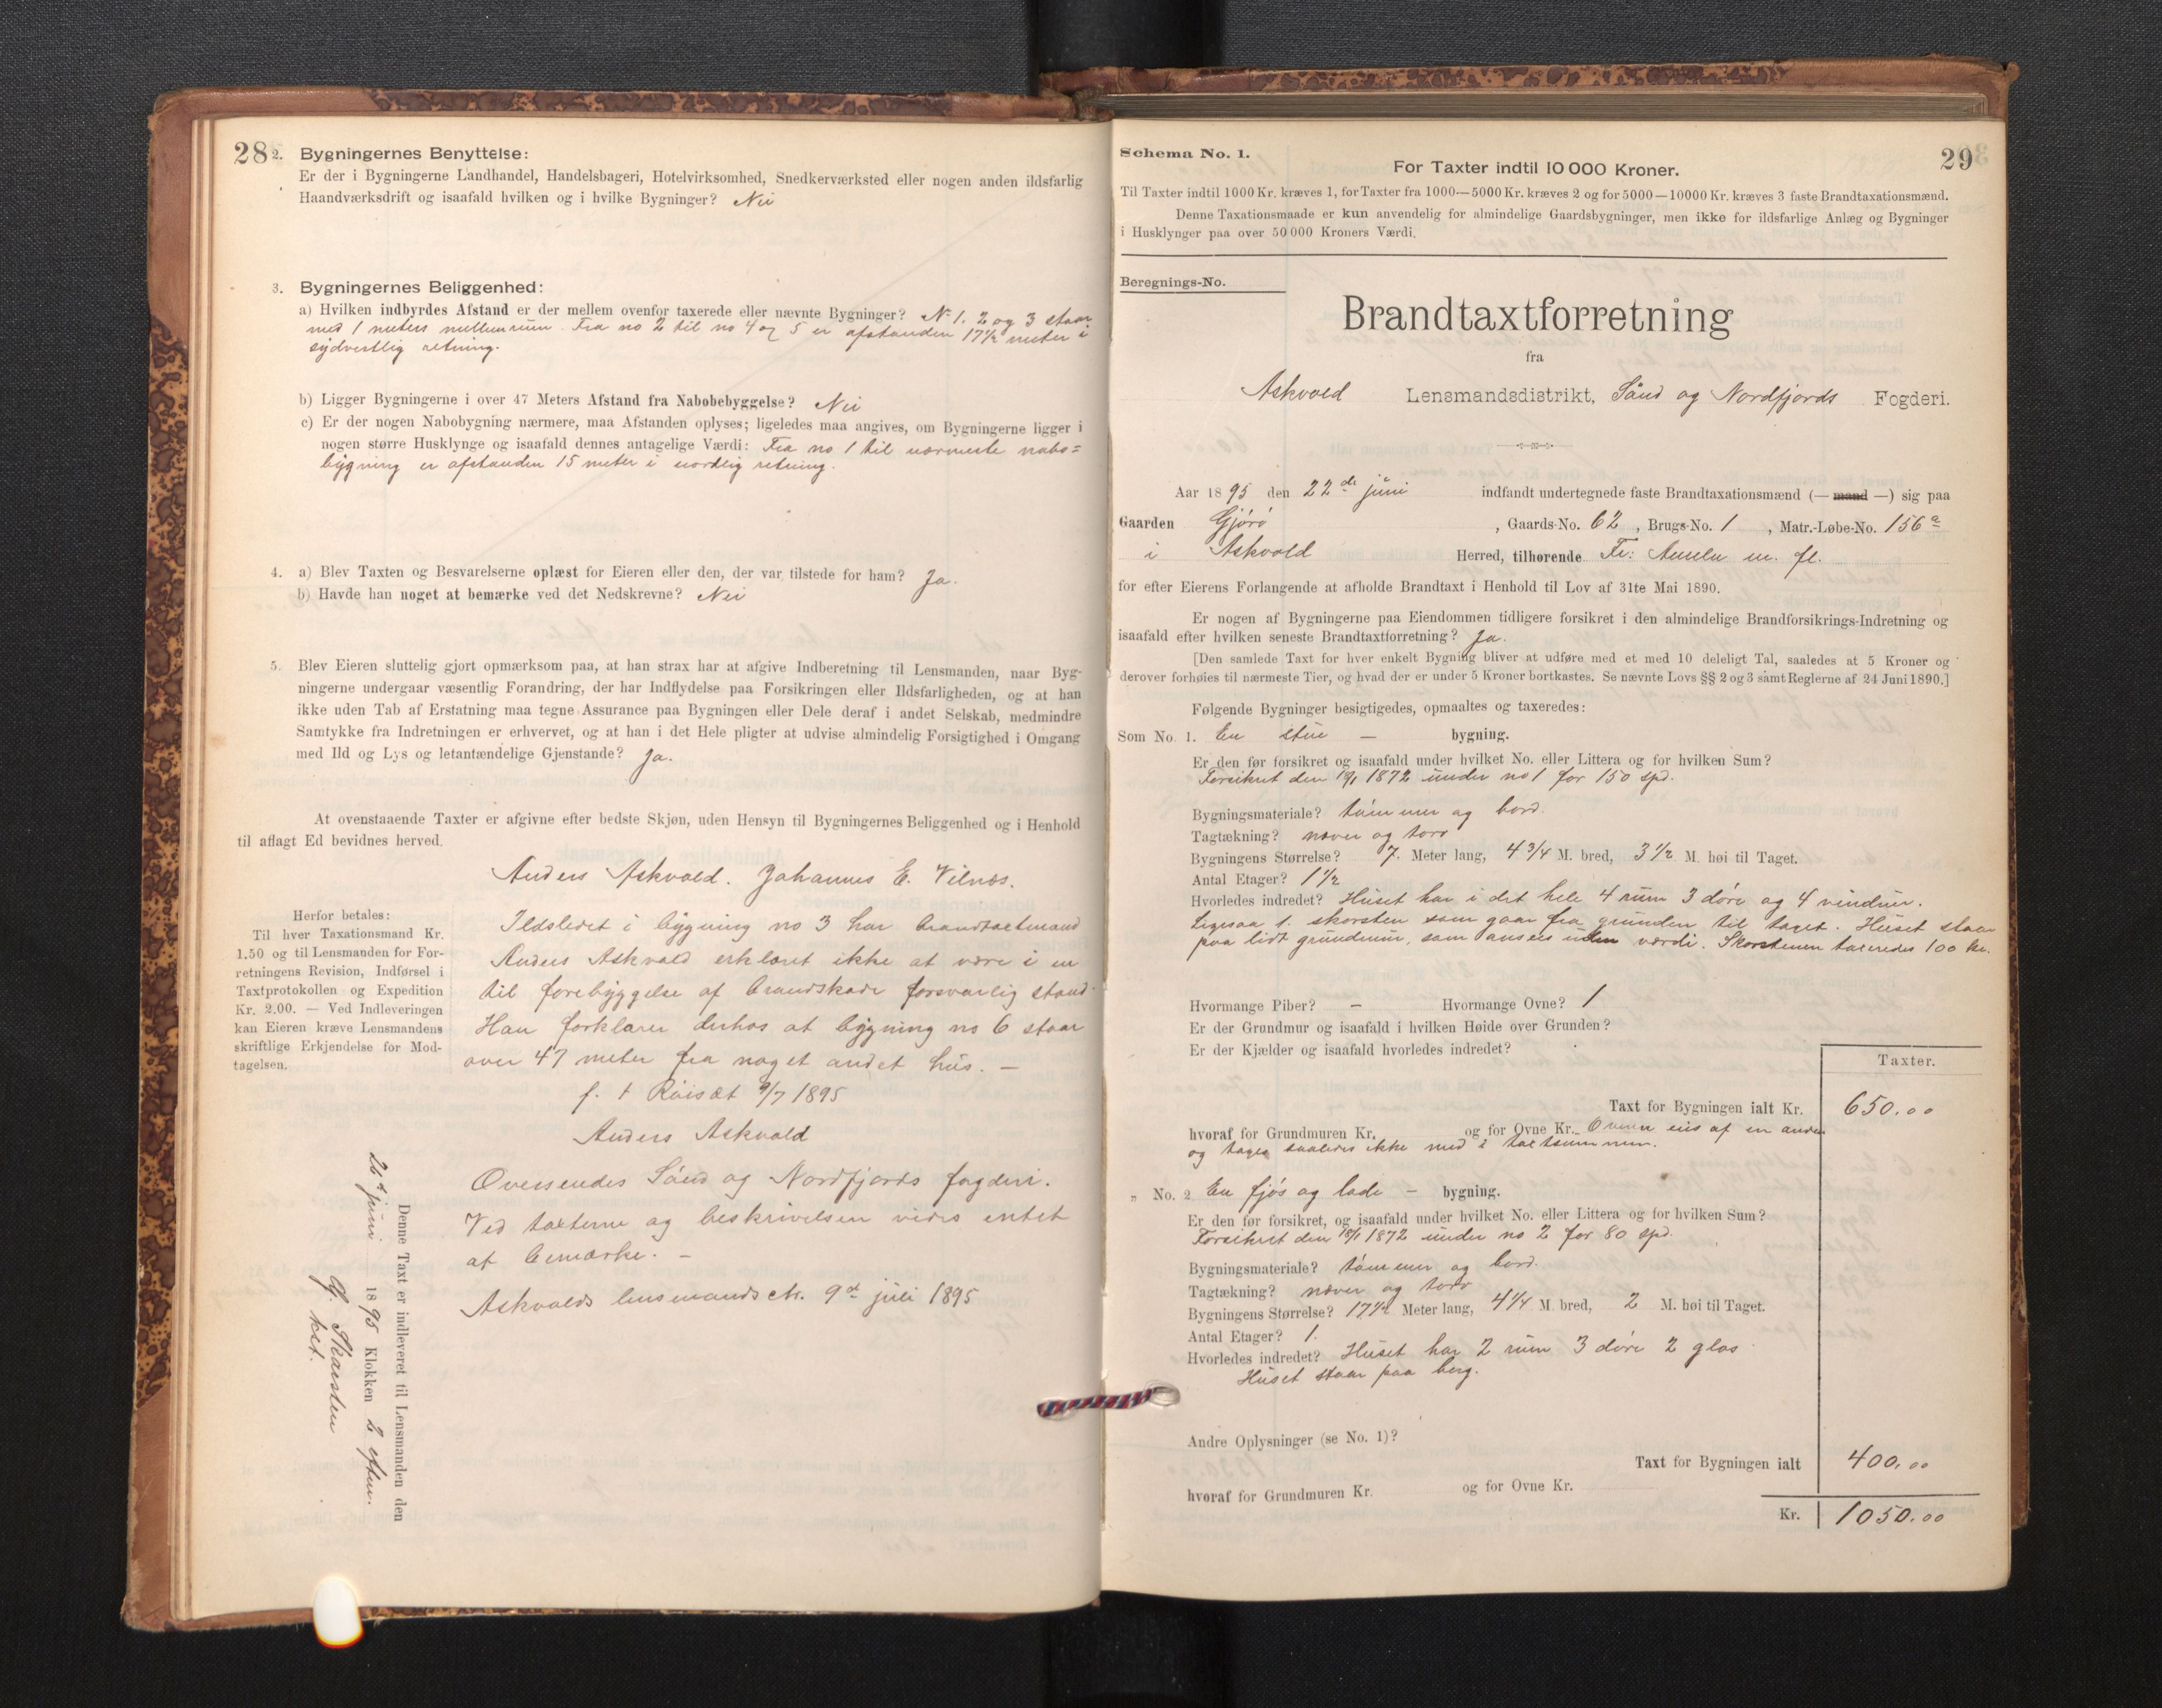 28
2. Bygningernes Benyttelse:
Er der i Bygningerne Landhandel, Handelsbageri, Hotelvirksomhed, Snedkerværksted eller nogen anden ildsfarlig
Haandværksdrift og isaafald hvilken og i hvilke Bygninger? Nei
3. Bygningernes Beliggenhed:
a) Hvilken indbyrdes Afstand er der mellem ovenfor taxerede eller nævnte Bygninger? No 1. 2 og 3 staar
med 1 meters mellemrum. Fra no 2 til no 4 og 5 er afstanden 17 1/2 meter i
sydvestlig retning.
b) Ligger Bygningerne i over 47 Meters Afstand fra Nabobebyggelse? Nei
c) Er der nogen Nabobygning nærmere, maa Afstanden oplyses; ligeledes maa angives, om Bygningerne ligger i
nogen større Husklynge og isaafald dennes antagelige Værdi: Fra no 1 til nærmeste nabo=
bygning er afstanden 15 meter i nordlig retning.
4. a) Blev Taxten og Besvarelserne oplæst for Eieren eller den, der var tilstede for ham? Ja.
b) Havde han noget at bemærke ved det Nedskrevne? Nei
5. Blev Eieren sluttelig gjort opmærksom paa, at han strax har at afgive Indberetning til Lensmanden, naar Byg-
ningerne undergaar væsentlig Forandring, der har Indflydelse paa Forsikringen eller Ildsfarligheden, og at han
ikke uden Tab af Erstatning maa tegne Assurance paa Bygningen eller Dele deraf i andet Selskab, medmindre
Samtykke fra Indretningen er erhvervet, og at han i det Hele pligter at udvise almindelig Forsigtighed i Omgang
med Ild og Lys og letantændelige Gjenstande? Ja.
At ovenstaaende Taxter er afgivne efter bedste Skjøn, uden Hensyn til Bygningernes Beliggenhed og i Henhold
til aflagt Ed bevidnes herved.
Anders Askvold. Johannes E. Vilnæs.
Herfor betales:
Til hver Taxationsmand Kr.
1.50 og til Lensmanden for For-
retningens Revision, Indførsel i
Taxtprotokollen og Expedition
Kr. 2.00. — Ved Indleveringen
kan Eieren kræve Lensmandens
skriftlige Erkjendelse for Mod-
tagelsen.
Ildstedet i bygning no 3 har brandtaxtmand
Anders Askvold erklæret ikke at være i en
til forebyggelse af brandskade forsvarlig stand.
Han forklarer derhos at bygning no 6 staar
over 47 meter fra noget andet hus. —
p. t. Röiset 9/7 1895
Anders Askvold
Oversendes Sönd og Nordfjords fogderi.
Ved taxterne og beskrivelsen vides intet
at bemærke. —
Askvolds lensmandsctr. 9de juli 1895
Denne Taxt er indleveret til Lensmanden den
26de juni 1895 Klokken 2 efterm.
Skarsten
kst.
Schema No. 1.
29
For Taxter indtil 10 000 Kroner.
Til Taxter indtil 1000 Kr. kræves 1, for Taxter fra 1000—5000 Kr. kræves 2 og for 5000—10000 Kr. kræves 3 faste Brandtaxationsmænd.
Denne Taxationsmaade er kun anvendelig for almindelige Gaardsbygninger, men ikke for ildsfarlige Anlæg og Bygninger
i Husklynger paa over 50 000 Kroners Værdi.
Beregnings-No.
Brandtaxtforretning
fra
Askvold Lensmandsdistrikt, Sönd og Nordfjords Fogderi.
Aar 1895 den 22de juni indfandt undertegnede faste Brandtaxationsmænd (— mand —) sig paa
Gaarden Gjörö, Gaards-No. 62, Brugs-No. 1, Matr.-Løbe-No. 156 a
i Askvold Herred, tilhørende Fr: m. fl.
for efter Eierens Forlangende at afholde Brandtaxt i Henhold til Lov af 31te Mai 1890.
Er nogen af Bygningerne paa Eiendommen tidligere forsikret i den almindelige Brandforsikrings-Indretning og
isaafald efter hvilken seneste Brandtaxtforretning? Ja.
[Den samlede Taxt for hver enkelt Bygning bliver at udføre med et med 10 deleligt Tal, saaledes at 5 Kroner og
derover forhøies til nærmeste Tier, og hvad der er under 5 Kroner bortkastes. Se nævnte Lovs §§ 2 og 3 samt Reglerne af 24 Juni 1890.]
Følgende Bygninger besigtigedes, opmaaltes og taxeredes:
Som No. 1. En stue — bygning.
Er den før forsikret og isaafald under hvilket No. eller Littera og for hvilken Sum?
Forsikret den 18/1 1872 under no 1 for 150 spd.
Bygningsmateriale? tömmer og bord.
Tagtækning? næver og torv
Bygningens Størrelse? 7. Meter lang, 4 3/4 M. bred, 3 1/2 M. høi til Taget.
Antal Etager? 1 1/2
Hvorledes indredet? Huset har i det hele 4 rum 3 döre og 4 vinduer.
Ligesaa 1. skorsten som gaar fra grunden til taget. Huset staar
paa lidt grundmur, som ansees uden værdi. Skorstenen taxeredes 100 kr.
Hvormange Piber? — Hvormange Ovne? 1
Er der Grundmur og isaafald i hvilken Høide over Grunden?
Er der Kjælder og isaafald hvorledes indredet?
Taxter.
Taxt for Bygningen ialt Kr. 650.00
hvoraf for Grundmuren Kr. og for Ovne Kr. Ovnen eies af en anden
og tages saaledes ikke med i taxtsummen.
" No. 2 En fjös og lade — bygning.
Er den før forsikret, og isaafald under hvilket No. eller Littera og for hvilken Sum?
Forsikret den 18/1 1872 under no 2 for 80 spd.
Bygningsmateriale? tömmer og bord.
Tagtækning? næver og torv
Bygningens Størrelse? 17 1/2 Meter lang, 4 1/4 M. bred, 2 M. høi til Taget.
Antal Etager? 1.
Hvorledes indredet? Huset har 2 rum 3 döre 2 glas
Huset staar paa berg.
Andre Oplysninger (se No. 1)?
Taxt for Bygningen ialt 400.00
hvoraf for Grundmuren Kr. og for Ovne Kr.
Kr. 1050.00